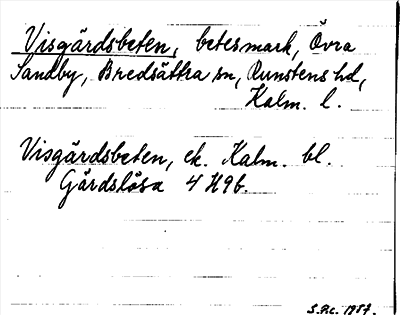 Visgärdsbeten, betesmark, Övra
Sandby, Bredsättra sn, Runstens hd,
Kalm. l.
Visgärdsbeten, ek. Kalm. bl.
Gärdslösa 4 H9b.
S.R.c. 1957.